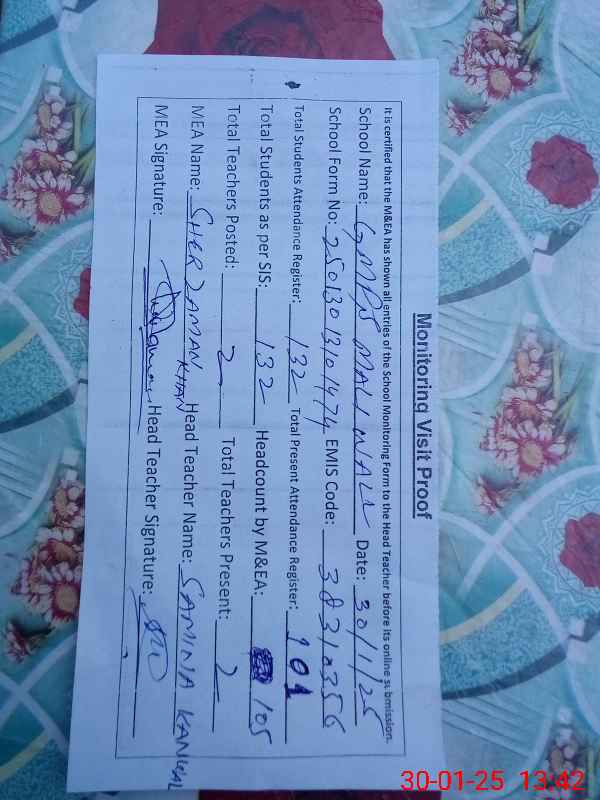 Monitoring Visit Proof
It is certified that the M&EA has shown all entries of the School Monitoring Form to the Head Teacher before its online submission.
School Name: GMPS MALI WALI Date: 30/1/25
School Form No: 25013013101474 EMIS Code: 38310356
Total Students Attendance Register: 132 Total Present Attendance Register: 101
Total Students as per SIS: 132 Headcount by M&EA: 105
Total Teachers Posted: 2 Total Teachers Present: 2
MEA Name: SHER ZAMAN KHAN Head Teacher Name: SAMINA KANWAL
MEA Signature: Head Teacher Signature:
30-01-25 13:42